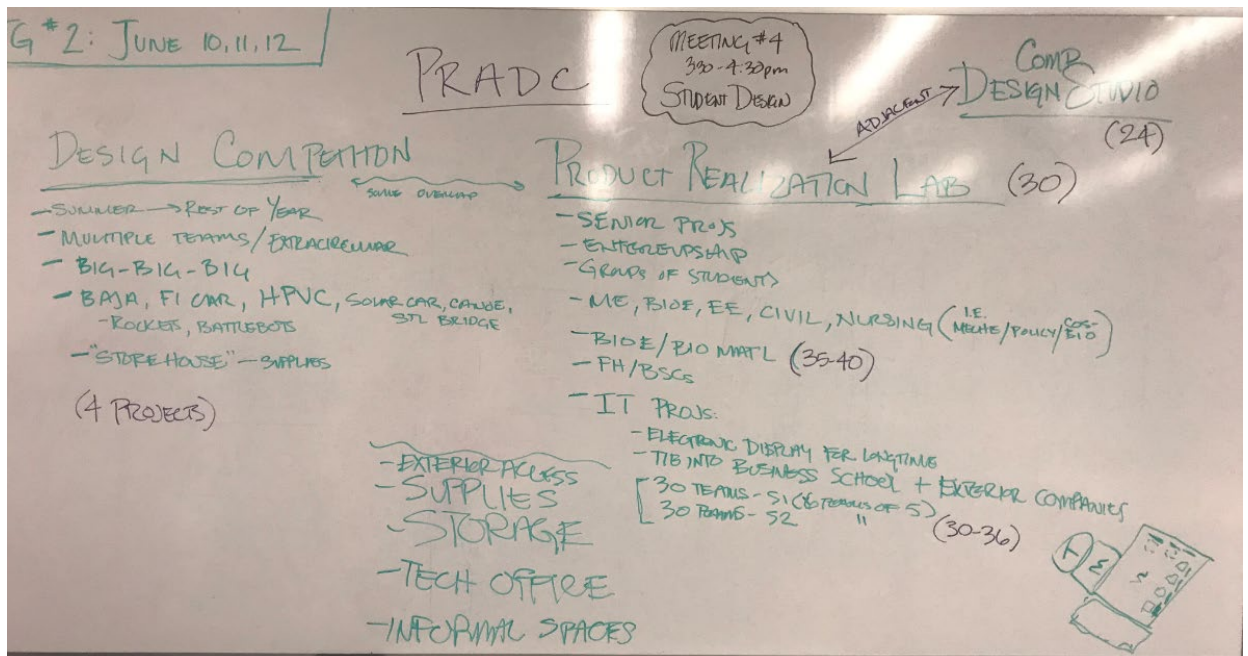 G #2: JUNE 10,11,12
PRADC
MEETING #4
330-4:30pm
STUDENT DESIGN
COMP
DESIGN STUDIO
(24)
ADJACENT
DESIGN COMPETITION
SOME OVERLAP
- SUMMER → REST OF YEAR
- MULTIPLE TEAMS/EXTRACIRCULAR
- BIG-BIG-BIG
- BAJA, F1 CAR, HPVC, SOLAR CAR, CANOE,
STL BRIDGE
- ROCKETS, BATTLEBOTS
- "STOREHOUSE" - SUPPLIES
(4 PROJECTS)
PRODUCT REALIZATION LAB (30)
- SENIOR PROJS
- ENTEREUPSHIP
- GROUPS OF STUDENTS
- ME, BIOE, EE, CIVIL, NURSING (I.E. MECHE/POLICY/COS-BIO)
- BIOE/BIO MATL (35-40)
- FH/BSCs
- IT PROJS:
- ELECTRONIC DISPLAY FOR LONGTIME
- TIE INTO BUSINESS SCHOOL + EXTERIOR COMPANIES
30 TEAMS - S1 (6 TEAMS OF 5)
30 TEAMS - S2 "
(30-36)
- EXTERIOR ACCESS
- SUPPLIES
- STORAGE
- TECH OFFICE
- INFORMAL SPACES